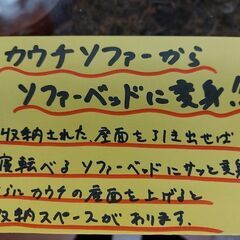 カウチソファーから
ソファーベッドに変身!!
収納された座面を引き出せば
寝転べるソファーベッドにサッと変身
カウチの座面を上げると
収納スペースがあります。